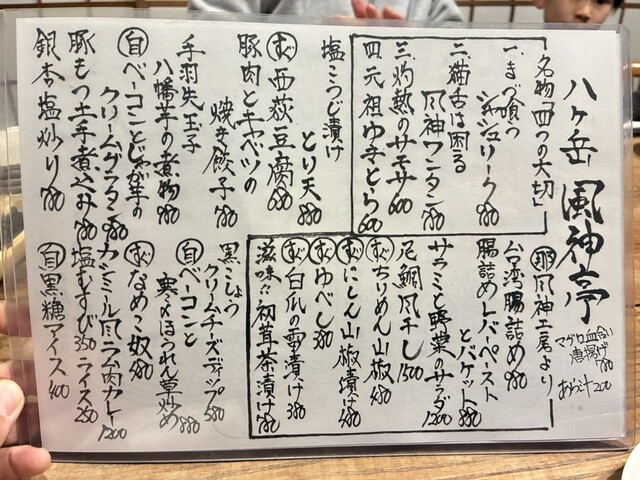 八ヶ岳 風神亭
マグロ血合い
唐揚げ 780
あら汁 200
名物「四つの大切」
一、きづ喰う
シャシュリーク 980
二、猫舌は困る
風神ワンタン 780
三、灼熱のサモサ 600
四、元祖ゆきとら 600
塩こうじ漬け
とり天 880
西荻豆腐 680
豚肉とキャベツの
焼き餃子 780
手羽先玉子
八幡芋の煮物 980
自 ベーコンとじゃが芋の
クリームグラタン 980
豚もつ土手煮込み 780
銀杏の塩炒り 780
那 風神工房より
台湾腸詰め 980
腸詰めレバーペースト
とバケット 880
サラミと野菜のサラダ 1200
尼鯛風干し 1500
ちりめん山椒 480
にしん山椒漬け 480
ゆべし 380
白瓜の雷漬け 380
滋味!! 初茸茶漬け 780
黒こしょう
クリームチーズディップ 580
自 ベーコンと
寒〆ほうれん草炒め 880
なめこ奴 580
カシミール風ラム肉カレー 1200
塩むすび 350 ライス 250
自 黒糖アイス 400